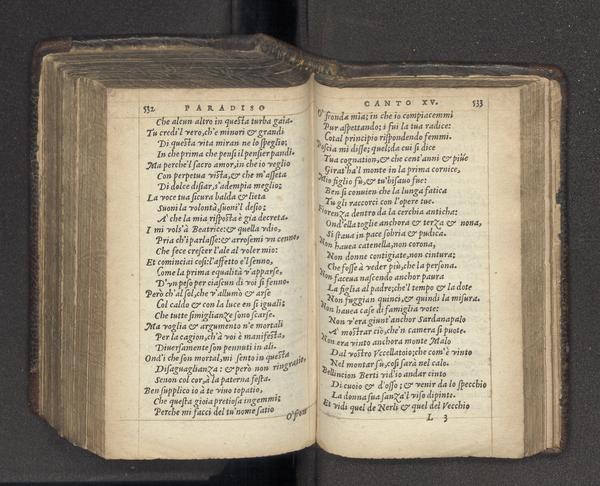 532 PARADISO
Che alcun altro in questa turba gaia.
Tu credi'l vero, ch'e minori & grandi
Di questa vita miran ne lo speglio;
In che prima che pensi il pensier pandi.
Ma perche'l sacro amor, in che io veglio
Con perpetua vista, & che m'asseta
Di dolce disiar, s'adempia meglio;
La voce tua sicura balda & lieta
Suoni la volontà, suoni'l desio;
A' che la mia risposta è gia decreta.
I mi vols'à Beatrice: & quella vdio,
Pria ch'i parlasse: & arrosemi vn cenno,
Che fece crescer l'ale al voler mio:
Et cominciai cosi: l'affetto e'l senno,
Come la prima equalità v'apparse,
D'vn peso per ciascun di voi si fenno.
Però ch'al sol, che v'allumò & arse
Col caldo & con la luce en si iguali;
Che tutte simiglianze sono scarse.
Ma voglia & argumento n'e mortali
Per la cagion, ch'à voi è manifesta,
Diuersamente son pennuti in ali.
Ond'i che son mortal, mi sento in questa
Disagnaglianza: & però non ringratio,
Senon col cor, à la paterna festa.
Ben supplico io à te viuo topatio,
Che questa gioia pretiosa ingemmi;
Perche mi facci del tu'nome satio
O' fron
CANTO XV. 533
O' fronda mia; in che io compiacemmi
Pur aspettando; i fui la tua radice:
Cotal principio rispondendo femmi.
Poscia mi disse; quel; da cui si dice
Tua cognation, & che cent'anni & piùe
Girat'ha'l monte in la prima cornice,
Mio figlio fù, & tu'bisauo fue:
Ben si conuien che la lunga fatica
Tu gli raccorci con l'opere tue.
Fiorenza dentro da la cerchia anticha:
Ond'ella toglie anchora & terza & nona,
Si staua in pace sobria & pudica.
Non hauea catenella, non corona,
Non donne contigiate, non cintura;
Che fosse à veder più, che la persona.
Non faceua nascendo anchor paura
La figlia al padre; che'l tempo & la dote
Non fuggian quinci, & quindi la misura.
Non hauea case di famiglia vote:
Non v'era giunt'anchor Sardanapalo
A' mostrar ciò, che'n camera si puote.
Non era vinto anchora monte Malo
Dal vostro Vccellatoio; che com'è vinto
Nel montar sù, così sarà nel calo.
Bellincion Berti vid'io andar cinto
Di cuoio & d'osso; & venir da lo specchio
La donna sua sanza'l viso dipinto.
Et vidi quel de Nerli & quel del Vecchio
L 3